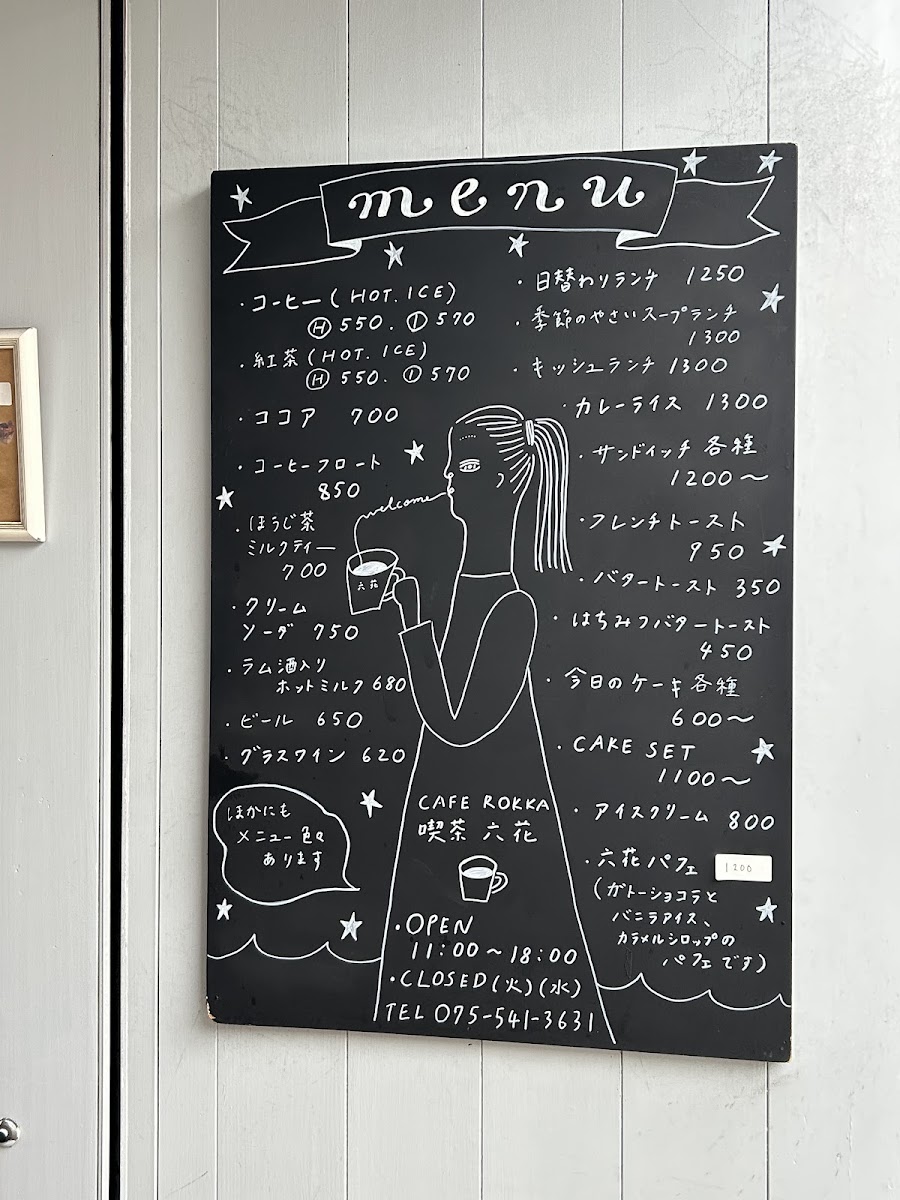 menu
・コーヒー(HOT. ICE)
Ⓗ 550. Ⓘ 570
・紅茶(HOT. ICE)
Ⓗ 550. Ⓘ 570
・ココア 700
・コーヒーフロート
850
・ほうじ茶
ミルクティー
700
・クリーム
ソーダ 750
・ラム酒入り
ホットミルク 680
・ビール 650
・グラスワイン 620
ほかにも
メニュー色々
あります
・日替わりランチ 1250
・季節のやさいスープランチ
1300
・キッシュランチ 1300
・カレーライス 1300
・サンドイッチ 各種
1200〜
・フレンチトースト
950
・バタートースト 350
・はちみつバタートースト
450
・今日のケーキ各種
600〜
・CAKE SET
1100〜
・アイスクリーム 800
・六花パフェ 1200
(ガトーショコラと
バニラアイス、
カラメルシロップの
パフェです)
welcome
六花
CAFE ROKKA
喫茶 六花
・OPEN
11:00〜18:00
・CLOSED(火)(水)
TEL 075-541-3631